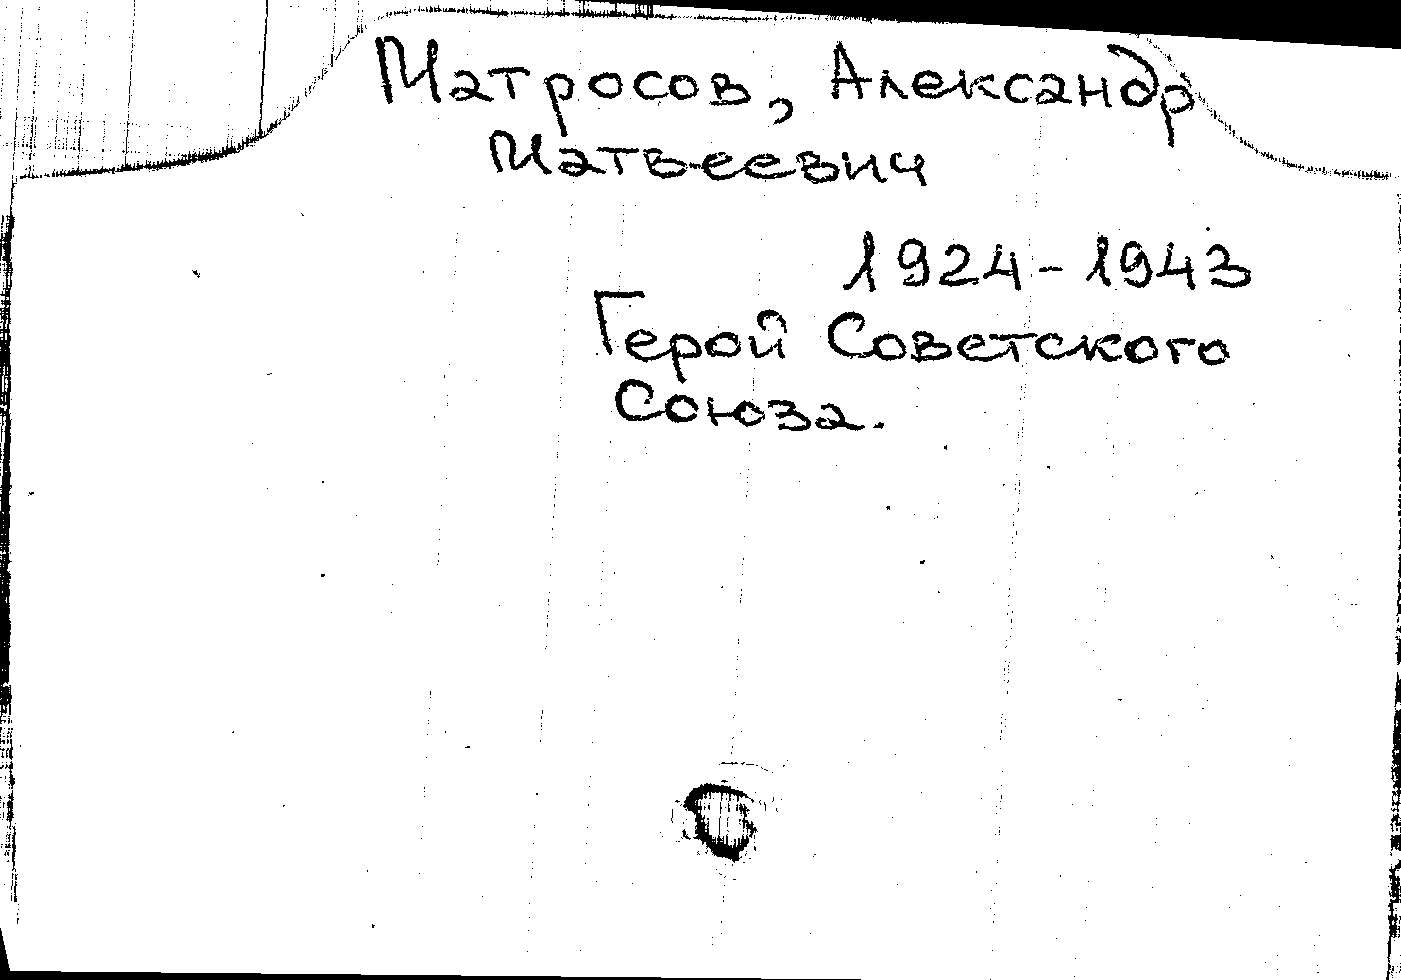 Матросов, Александр
Матвеевич
1924-1943
Герой Советского
Союза.